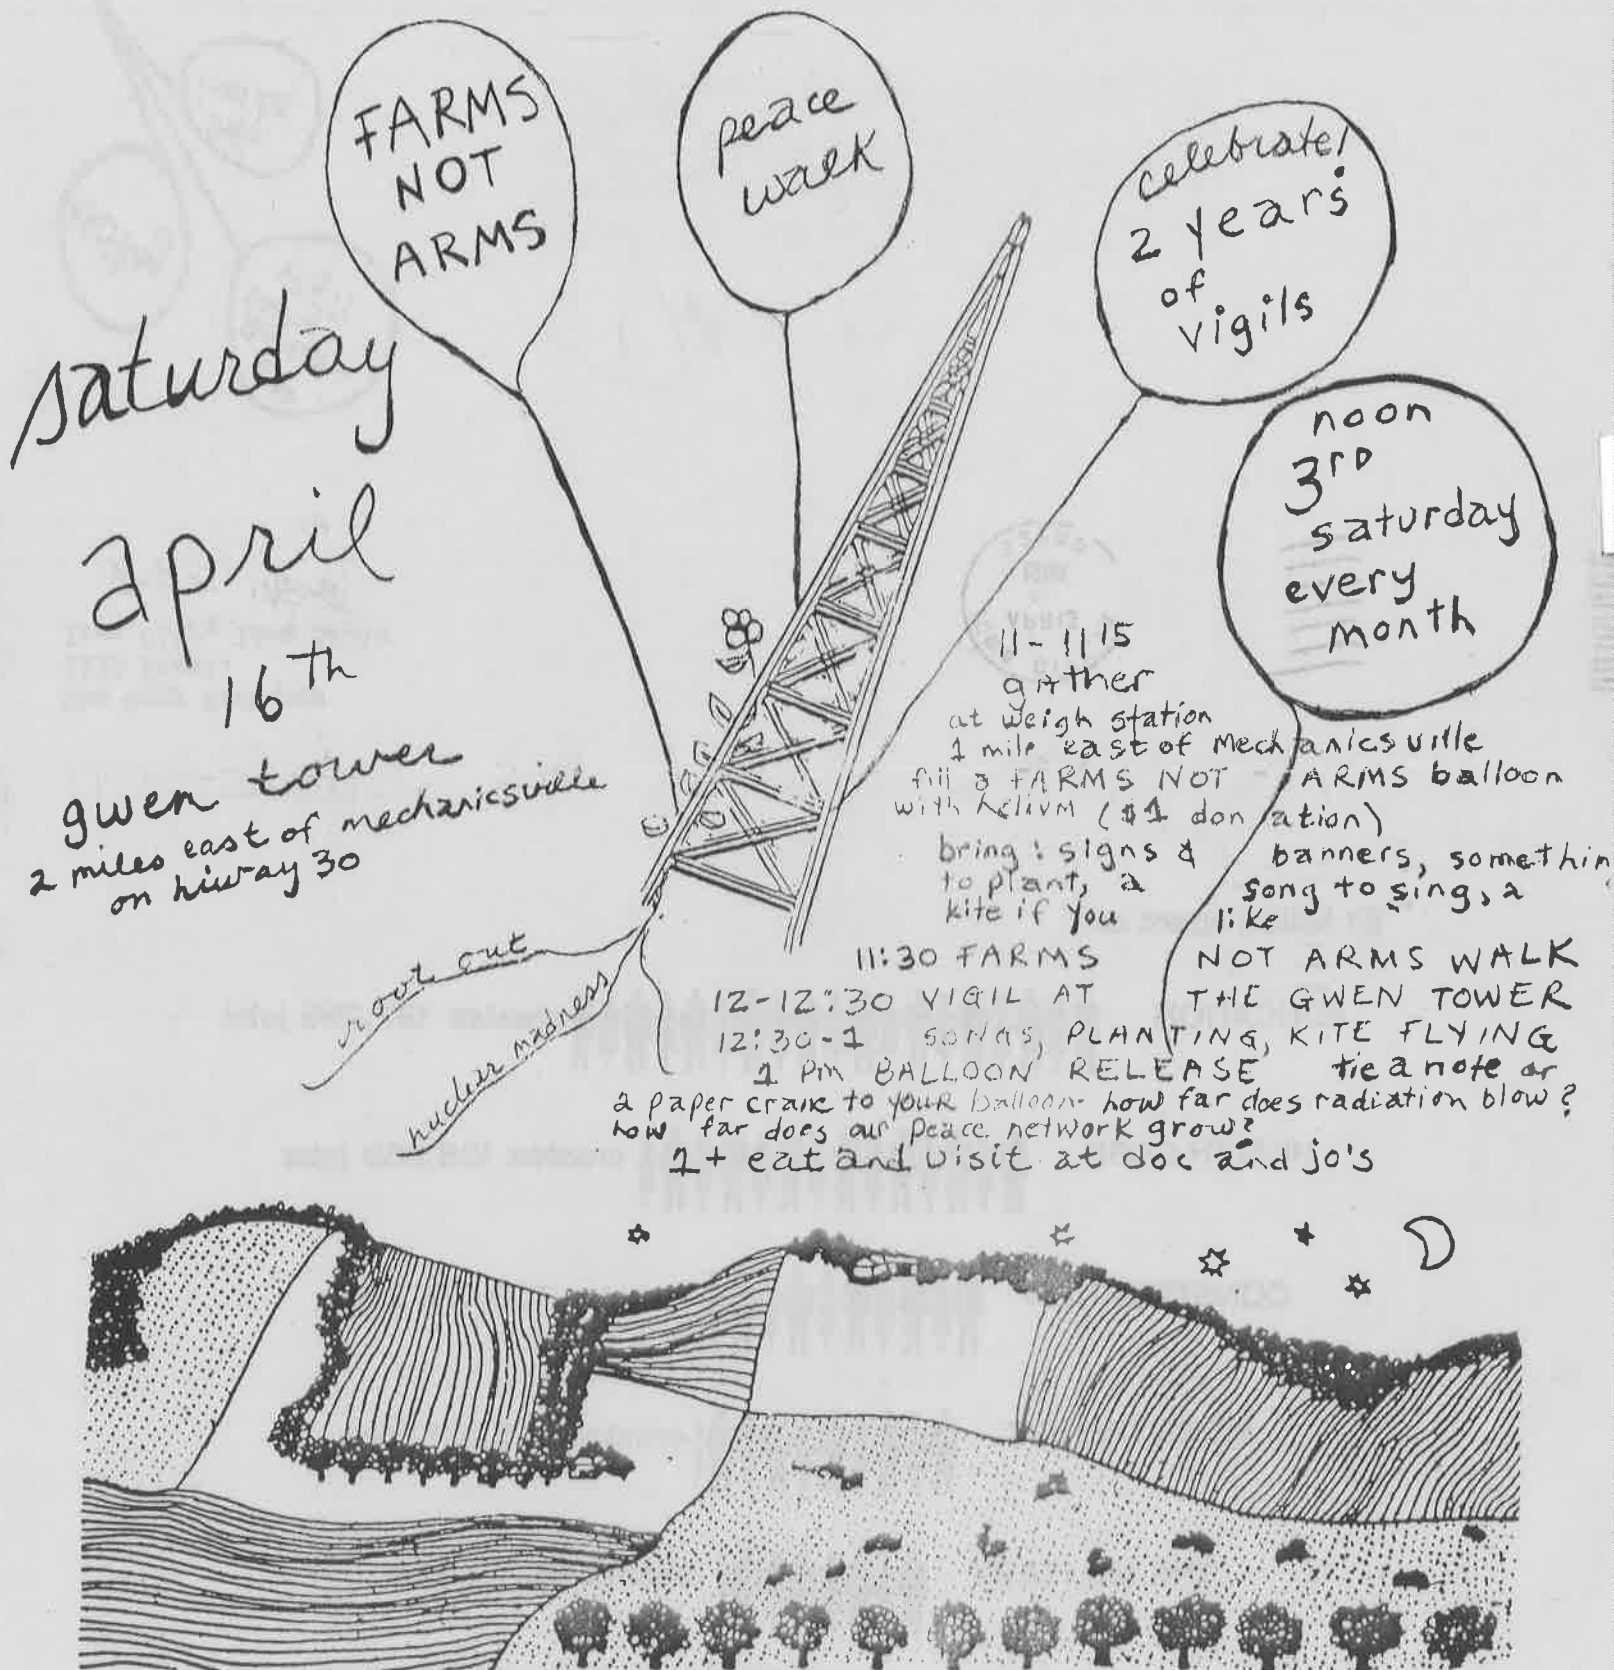 FARMS
NOT
ARMS
peace
walk
celebrate!
2 years
of
vigils
noon
3rd
saturday
every
month
saturday
april
16th
gwen tower
2 miles east of mechanicsville
on hiway 30
root out
nuclear madness
11-1115
gather
at weigh station
1 mile east of mechanicsville
fill a FARMS NOT ARMS balloon
with helium ($1 donation)
bring: signs & banners, somethin
to plant, a song to sing, a
kite if you like
11:30 FARMS NOT ARMS WALK
12-12:30 VIGIL AT THE GWEN TOWER
12:30-1 SONGS, PLANTING, KITE FLYING
1 pm BALLOON RELEASE tie a note or
a paper crane to your balloon. how far does radiation blow?
how far does our peace network grow?
1+ eat and visit at doc and jo's